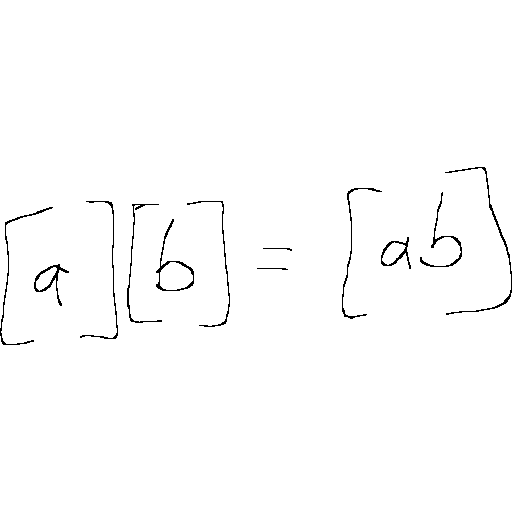 [a][b] = [ab]